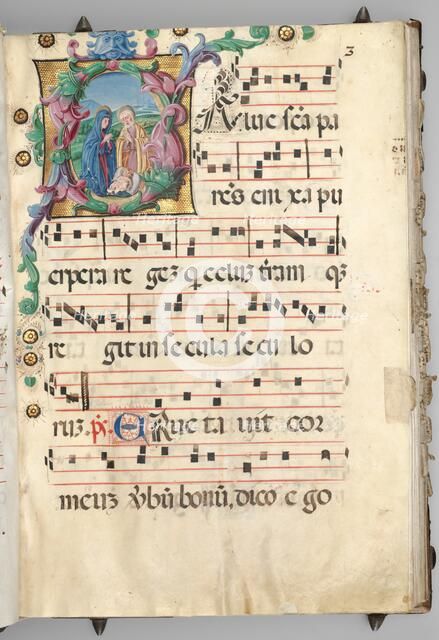 3
SAlue scã pa
rẽs enixa pu
erpera re gez q̃ celuz trãm qz
re git in se cula se culo
ruz. ps. ERucta uit cor
meuz v̄bũ bonũ, dico e go